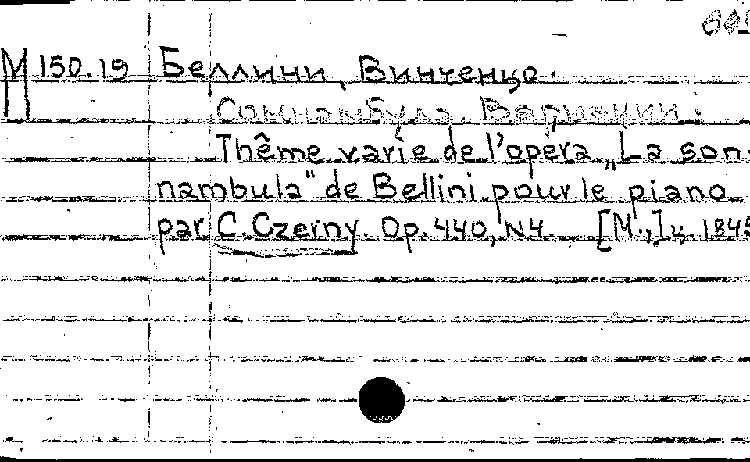 М 150.19 Беллини, Винченцо.
Сомнамбула. Вариации.
Thême varie de l'opera „La son-
nambula" de Bellini pour le piano
par C. Czerny. Op. 440, N4. [М.,] ц. 1845